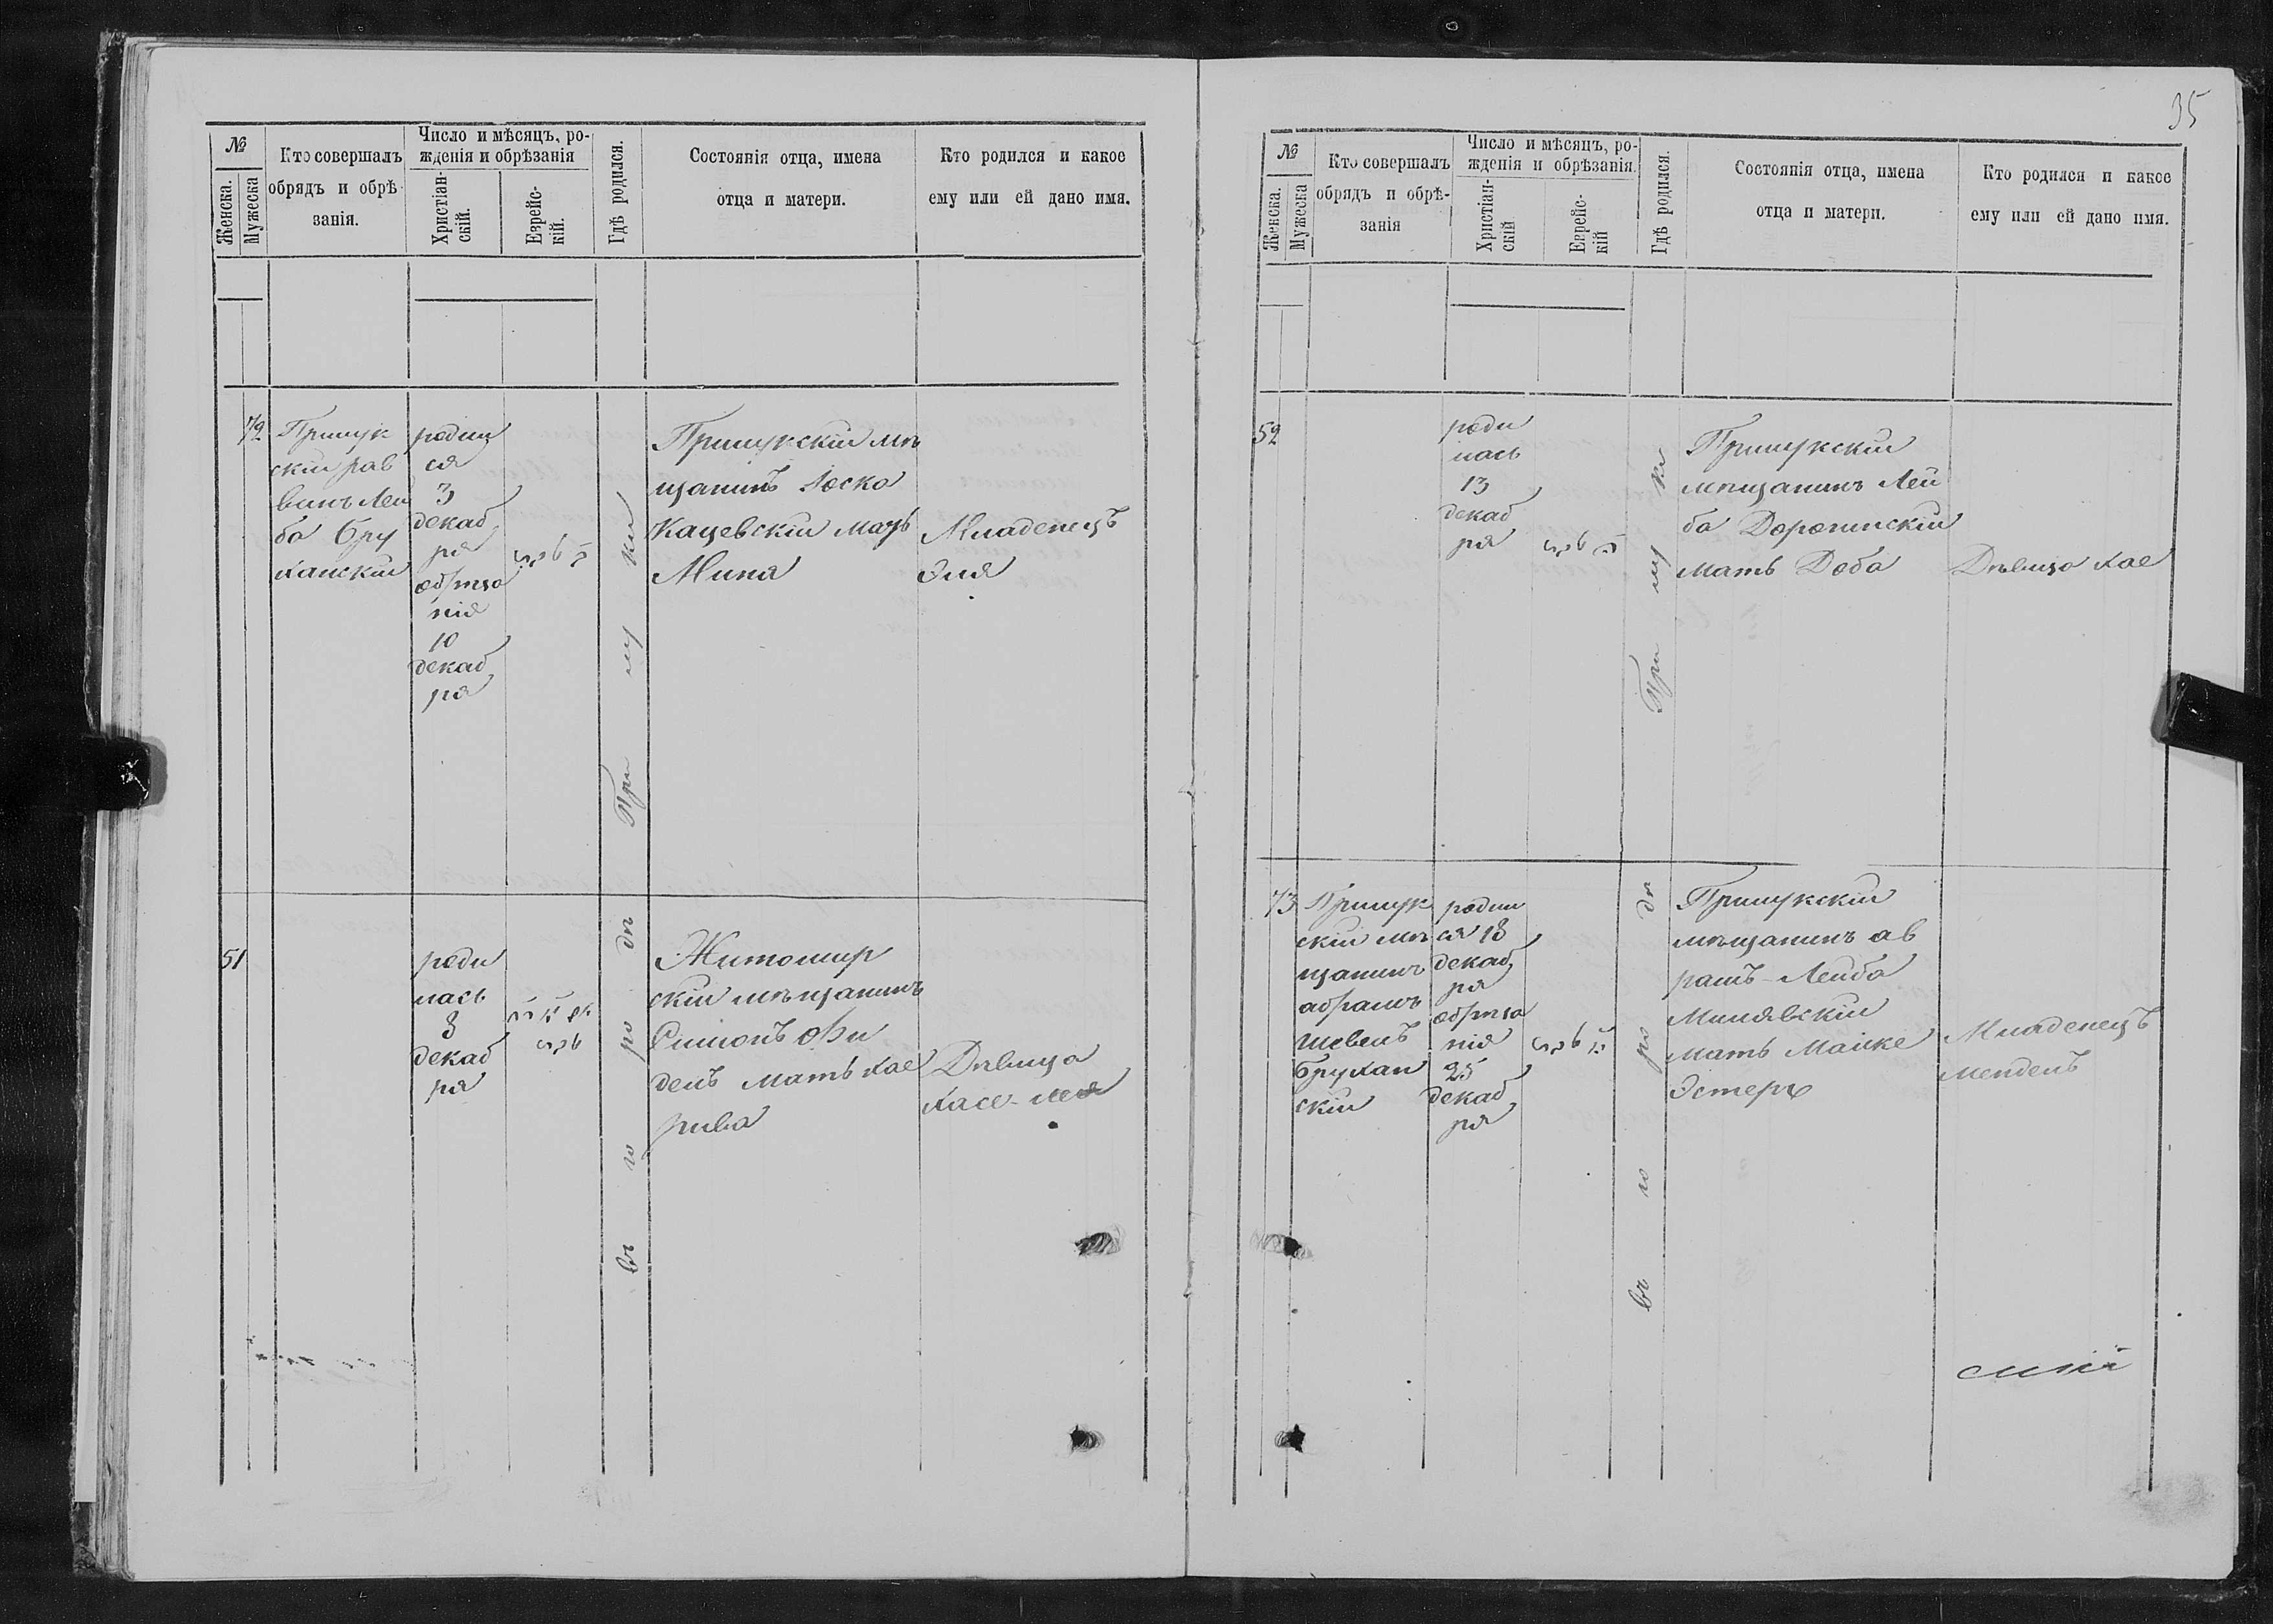 №
Женска.
Мужеска
Кто совершалъ
обрядъ и обрѣ-
занія.
Число и мѣсяцъ, ро-
жденія и обрѣзанія
Христіан-
скій.
Еврейс-
кій.
Гдѣ родился.
Состоянія отца, имена
отца и матери.
Кто родился и какое
ему или ей дано имя.
72
Прилук
скій рав
винъ Лей
ба Бру
ханскій
родил
ся
3
декаб
ря
обрѣза
нія
10
декаб
ря
въ го ро дѣ При лу ки
Прилукскій мѣ
щанинъ Іоско
Кацевскій мать
Миня
Младенецъ
Эля
51
роди
лась
8
декаб
ря
Житомир
скій мѣщанинъ
Симонъ
дель мать Хае
рива
Дѣвица
Хасе-лея
35
№
Женска.
Мужеска
Кто совершалъ
обрядъ и обрѣ-
занія
Число и мѣсяцъ, ро-
жденія и обрѣзанія.
Христіан-
скій
Еврейс-
кій
Гдѣ родился.
Состоянія отца, имена
отца и матери.
Кто родился и какое
ему или ей дано имя.
52
роди
лась
13
декаб
ря
въ го ро дѣ При лу ки
Прилукскій
мѣщанинъ Лей
ба Дорогинскій
мать Доба
Дѣвица Хае
73
Прилук
скій мѣ
щанинъ
абрамъ
шевель
Брухан
скій
родил
ся 18
декаб
ря
обрѣза
нія
25
декаб
ря
Прилукскій
мѣщанинъ аб
рамъ-Лейба
Милявскій
мать Малке
Эстеръ
Младенецъ
мендель